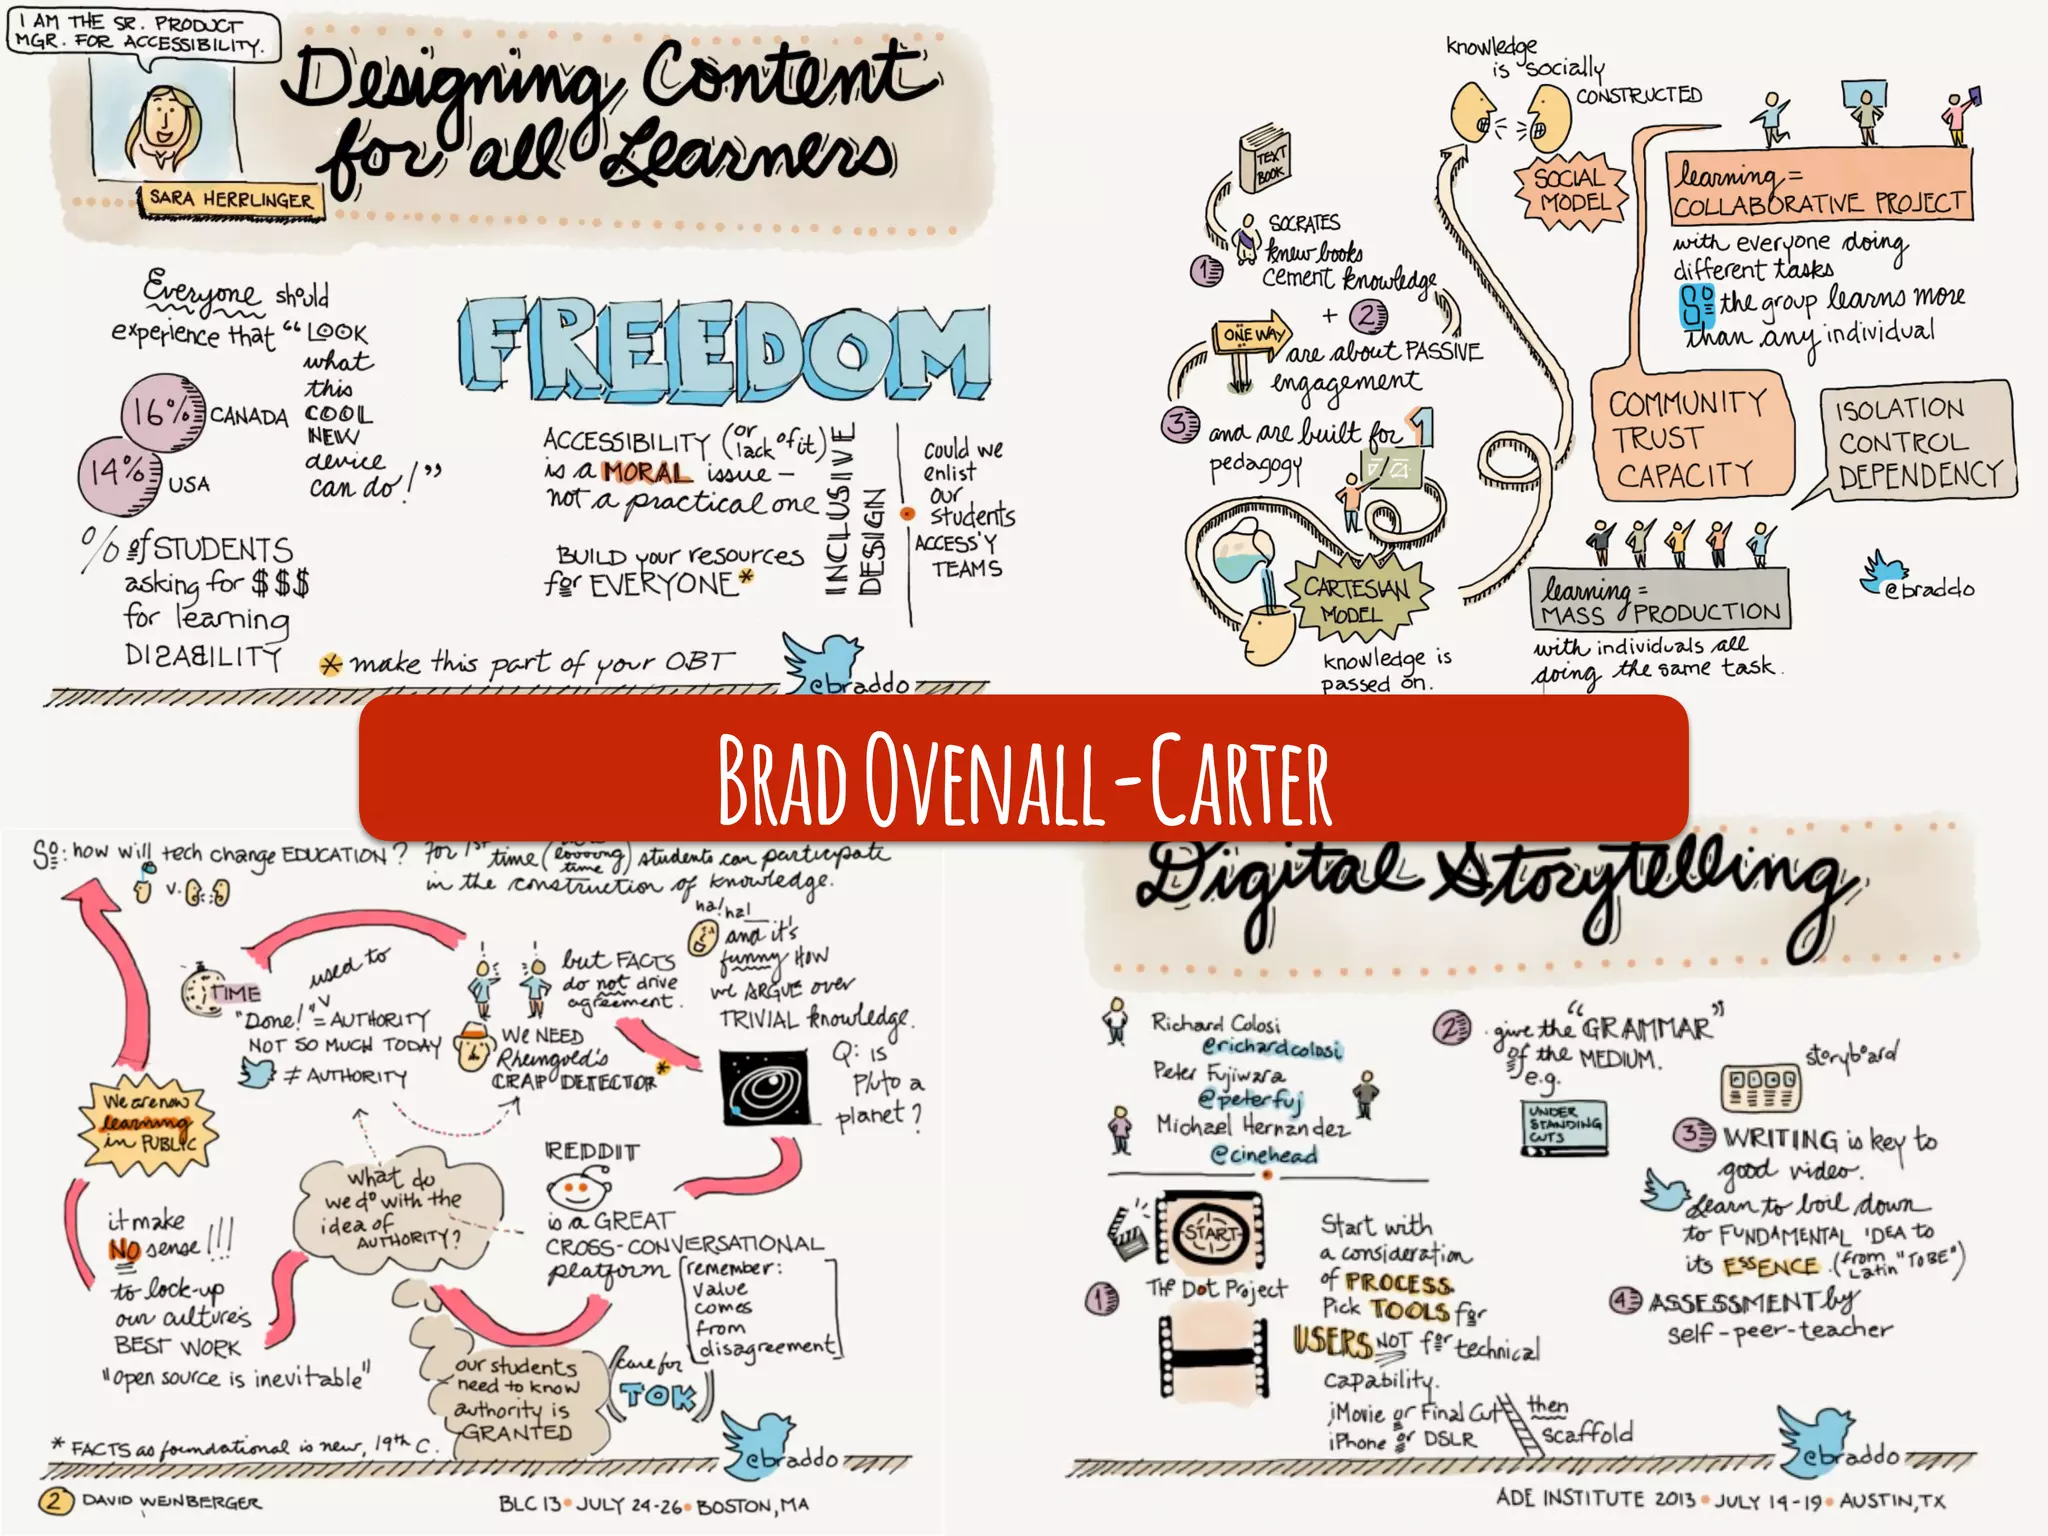 I AM THE SR. PRODUCT
MGR. FOR ACCESSIBILITY.
Designing Content
for all Learners
SARA HERRLINGER
Everyone should
experience that "LOOK
what
this
COOL
NEW
device
can do!"
16% CANADA
14% USA
% of STUDENTS
asking for $$$
for learning
DISABILITY
FREEDOM
ACCESSIBILITY (or lack of it)
is a MORAL issue —
not a practical one
BUILD your resources
for EVERYONE*
INCLUSIVE
DESIGN
could we
enlist
our
students
ACCESS'Y
TEAMS
* make this part of your OBT
@braddo
knowledge
is socially
CONSTRUCTED
TEXT
BOOK
SOCRATES
1 knew books
cement knowledge
+ 2
ONE WAY
are about PASSIVE
engagement
3 and are built for 1
pedagogy
CARTESIAN
MODEL
knowledge is
passed on.
SOCIAL
MODEL
learning =
COLLABORATIVE PROJECT
with everyone doing
different tasks
So the group learns more
than any individual
COMMUNITY
TRUST
CAPACITY
ISOLATION
CONTROL
DEPENDENCY
learning =
MASS PRODUCTION
with individuals all
doing the same task.
@braddo
Brad Ovenall-Carter
So: how will tech change EDUCATION?
v.
for 1st time ( time) students can participate
in the construction of knowledge.
ha! ha!
and it's
funny HOW
we ARGUE over
TRIVIAL knowledge.
Q: is
Pluto a
planet?
but FACTS
do not drive
agreement.
TIME
used to
"Done!" = AUTHORITY
NOT SO MUCH TODAY
≠ AUTHORITY
WE NEED
Rheingold's
CRAP DETECTOR*
We are now
learning
in PUBLIC
what do
we do with the
idea of
AUTHORITY?
REDDIT
is a GREAT
CROSS-CONVERSATIONAL
platform
[remember:
value
comes
from
disagreement]
it make
NO sense!!!
to lock-up
our culture's
BEST WORK
"open source is inevitable"
our students
need to know
authority is
GRANTED
(care for
TOK)
* FACTS as foundational is new, 19th C.
@braddo
2 DAVID WEINBERGER
BLC 13 • JULY 24-26 • BOSTON, MA
Digital Storytelling
Richard Colosi
@richardcolosi
Peter Fujiwara
@peterfuj
Michael Hernandez
@cinehead
START
1 THE DOT Project
Start with
a consideration
of PROCESS.
Pick TOOLS for
USERS NOT for technical
capability.
iMovie or Final Cut
iPhone or DSLR
then
scaffold
2 give the "GRAMMAR"
of the MEDIUM.
e.g.
UNDER
STANDING
CUTS
storyboard
3 WRITING is key to
good video.
Learn to boil down
to FUNDAMENTAL IDEA to
its ESSENCE. (from Latin "TO BE")
4 ASSESSMENT by
self-peer-teacher
@braddo
ADE INSTITUTE 2013 • JULY 14-19 • AUSTIN, TX